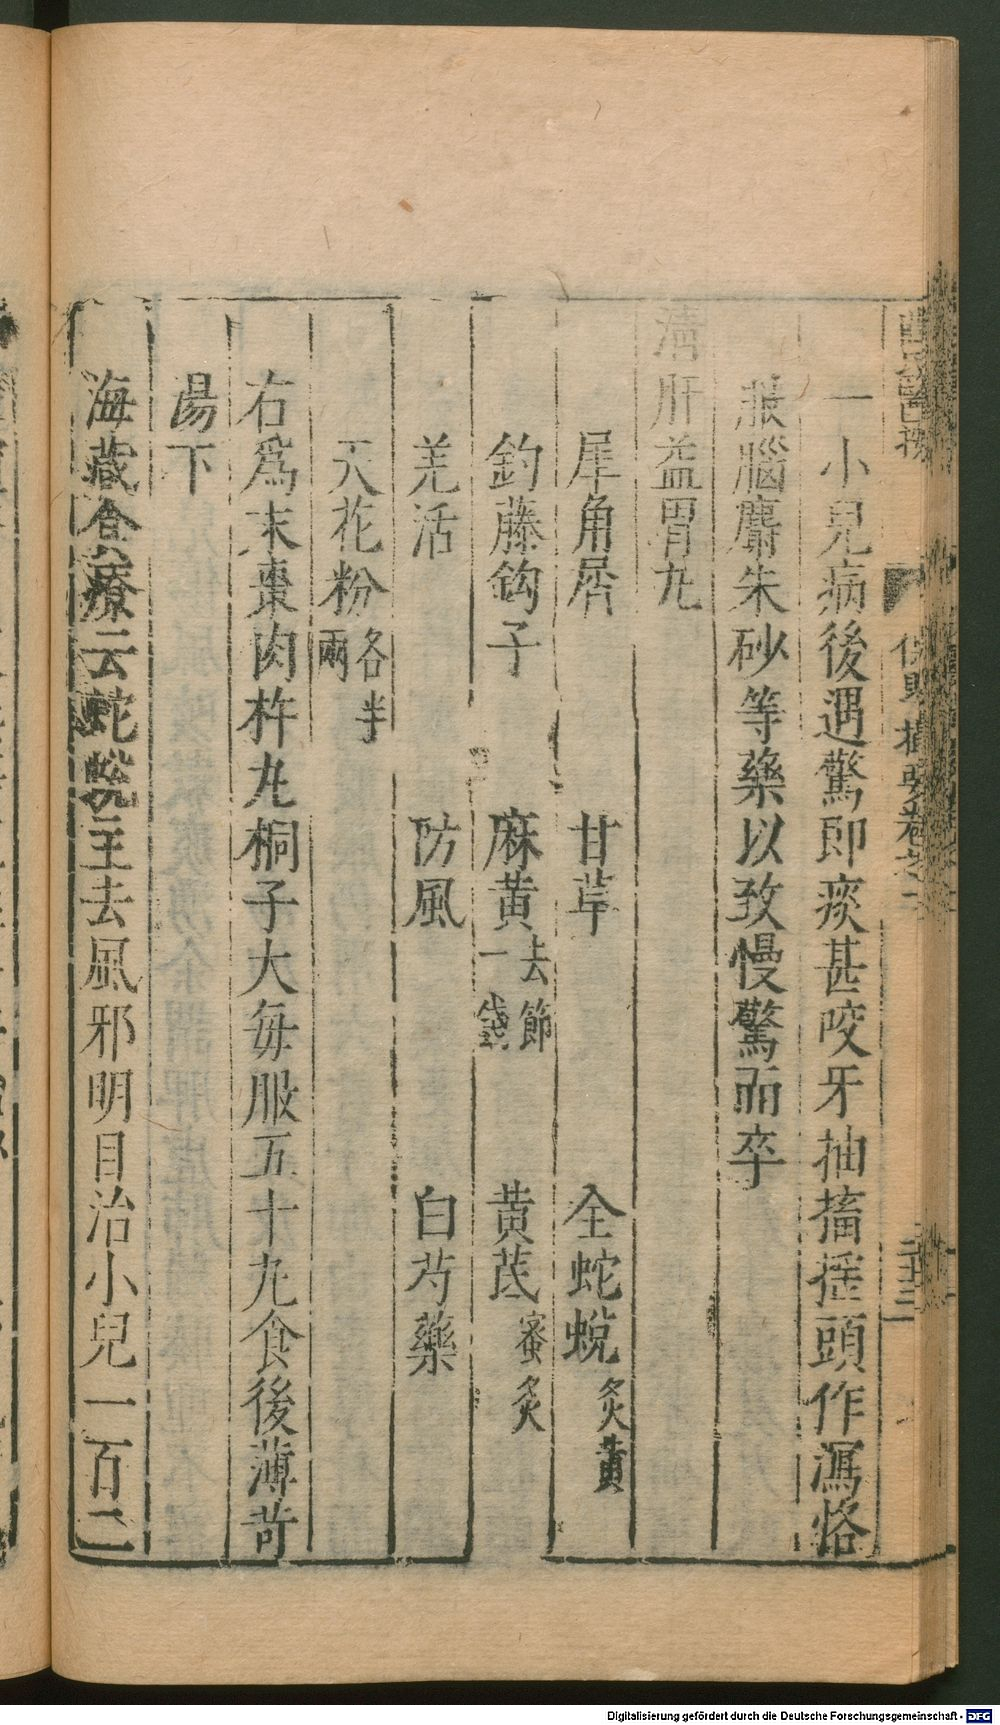 保
摘要卷之
一小兒病後遇驚即痰甚咬牙抽搐搖頭作瀉恪
服腦麝朱砂等藥以致慢驚而卒
清肝益胃丸
犀角屑 甘草 全蛇蛻炙黃
釣藤鈎子 麻黃去節一錢 黃茋蜜炙
羌活 防風 白芍藥
天花粉各半兩
右爲末棗肉杵丸桐子大每服五十丸食後薄苛
湯下
海藏云蛇蛻主去風邪明目治小兒一百二
Digitalisierung gefördert durch die Deutsche Forschungsgemeinschaft - DFG